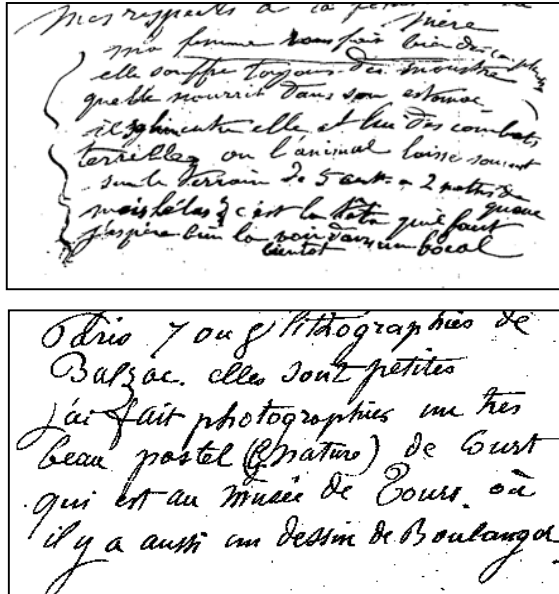 Mes respects à la
mère
ma femme vous fait bien des
elle souffre toujours des monstre
quelle nourrit dans son estomac
il y a entre elle et lui des combats
terribles ou l'animal laisse souvent
sur le terrain de 5 cent. a 2 metres de
queue
mais hélas c'est la tête qu'il faut
j'espère bien la voir dans un bocal
bientot
Paris 7 ou 8 lithographies de
Balzac. elles sont petites
j'ai fait photographies un tres
beau pastel (nature) de Court
qui est au musée de Tours. où
il y a aussi un dessin de Boulanger